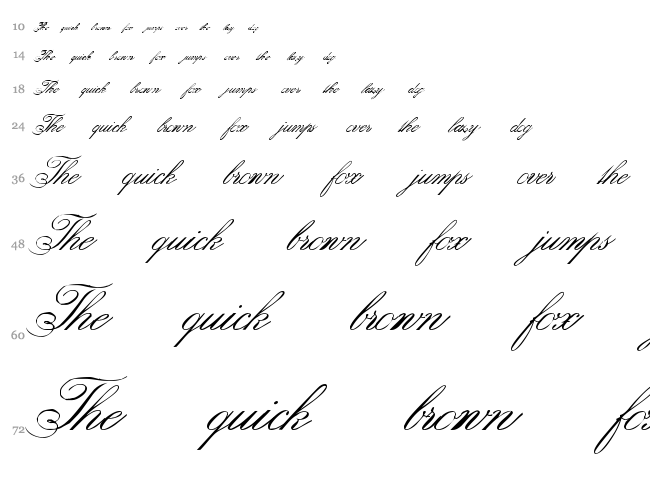 10 The quick brown fox jumps over the lazy dog
14 The quick brown fox jumps over the lazy dog
18 The quick brown fox jumps over the lazy dog
24 The quick brown fox jumps over the lazy dog
36 The quick brown fox jumps over the
48 The quick brown fox jumps
60 The quick brown fox
72 The quick brown fox